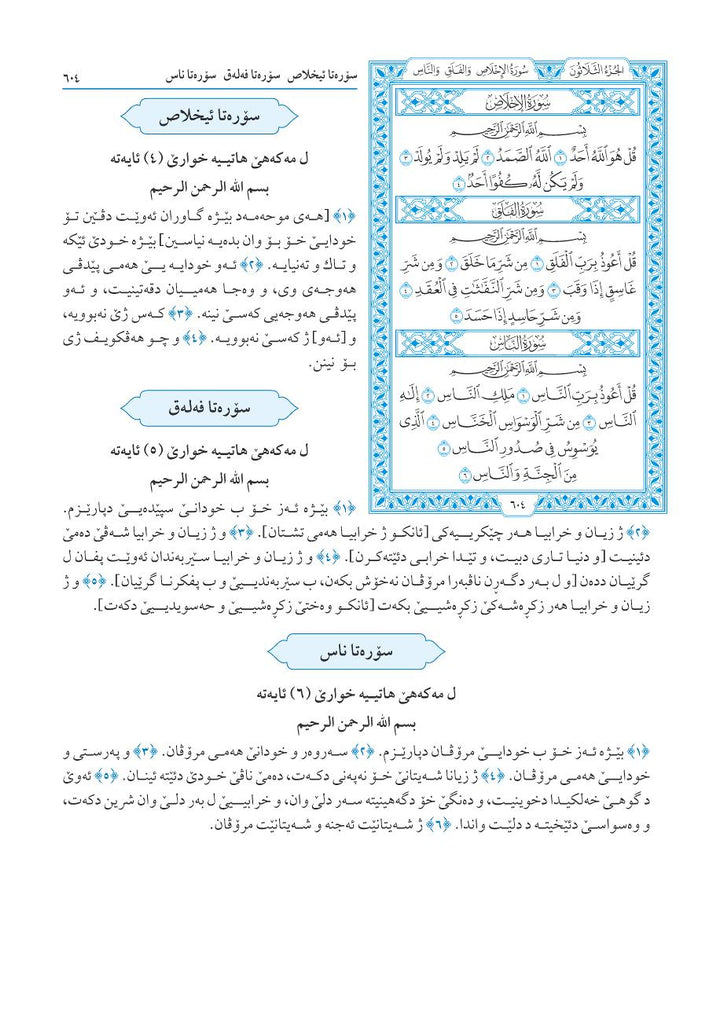 سۆرەتا ئیخلاص سۆرەتا فەلەق سۆرەتا ناس
٦٠٤
الجُزءُ الثَّلَاثُونَ
سُورَةُ الإِخْلَاصِ وَالفَلَقِ وَالنَّاسِ
سُورَةُ الإِخْلَاصِ
بِسْمِ اللَّهِ الرَّحْمَٰنِ الرَّحِيمِ
قُلْ هُوَ اللَّهُ أَحَدٌ ١ اللَّهُ الصَّمَدُ ٢ لَمْ يَلِدْ وَلَمْ يُولَدْ ٣
وَلَمْ يَكُن لَّهُ كُفُوًا أَحَدٌ ٤
سُورَةُ الفَلَقِ
بِسْمِ اللَّهِ الرَّحْمَٰنِ الرَّحِيمِ
قُلْ أَعُوذُ بِرَبِّ الْفَلَقِ ١ مِن شَرِّ مَا خَلَقَ ٢ وَمِن شَرِّ
غَاسِقٍ إِذَا وَقَبَ ٣ وَمِن شَرِّ النَّفَّاثَاتِ فِي الْعُقَدِ ٤
وَمِن شَرِّ حَاسِدٍ إِذَا حَسَدَ ٥
سُورَةُ النَّاسِ
بِسْمِ اللَّهِ الرَّحْمَٰنِ الرَّحِيمِ
قُلْ أَعُوذُ بِرَبِّ النَّاسِ ١ مَلِكِ النَّاسِ ٢ إِلَٰهِ
النَّاسِ ٣ مِن شَرِّ الْوَسْوَاسِ الْخَنَّاسِ ٤ الَّذِي
يُوَسْوِسُ فِي صُدُورِ النَّاسِ ٥
مِنَ الْجِنَّةِ وَالنَّاسِ ٦
٦٠٤
سۆرەتا ئیخلاص
ل مەكەهێ هاتییە خوارێ (٤) ئایەتە
بسم الله الرحمن الرحيم
﴿١﴾ [هـەی موحەمـەد بێـژە گـاوران ئەوێـت دڤێـن تـۆ
خودایـێ خـۆ بـۆ وان بدەیـە نیاسـین] بێـژە خـودێ ئێكە
و تـاك و تەنیایـە. ﴿٢﴾ ئـەو خودایـە یـێ هەمـی پێدڤـی
هەوجـەی وی، و وەجـا هەمیـیـان دقەتینیـت، و ئـەو
پێدڤـی هەوجەیـی كەسـێ نینە. ﴿٣﴾ كـەس ژێ نەبوویە،
و [ئـەو] ژ كەسـێ نەبوویـە. ﴿٤﴾ و چـو هەڤكویـف ژی
بـۆ نینن.
سۆرەتا فەلەق
ل مەكەهێ هاتییە خوارێ (٥) ئایەتە
بسم الله الرحمن الرحيم
﴿١﴾ بێـژە ئـەز خـۆ ب خودانـێ سپێدەیـێ دپارێـزم.
﴿٢﴾ ژ زیـان و خرابیـا هـەر چێكرییـەكی [ئانكـو ژ خرابیـا هەمی تشتان]. ﴿٣﴾ و ژ زیـان و خرابیا شـەڤێ دەمێ
دئینیـت [و دنیـا تـاری دبیـت، و تێـدا خرابـی دئێتەكـرن]. ﴿٤﴾ و ژ زیـان و خرابیـا سـێربەندان ئەوێـت پفـان ل
گرێیـان ددەن [و ل بـەر دگـەڕن ناڤبەرا مرۆڤـان نەخۆش بكەن، ب سـێربەندیـێ و ب پفكرنـا گرێیان]. ﴿٥﴾ و ژ
زیـان و خرابیـا هەر زكڕەشـەكێ زكڕەشیـێ بكەت [ئانكـو وەختێ زكڕەشیـێ و حەسویدیـێ دكەت].
سۆرەتا ناس
ل مەكەهێ هاتییە خوارێ (٦) ئایەتە
بسم الله الرحمن الرحيم
﴿١﴾ بێـژە ئـەز خـۆ ب خودایـێ مرۆڤـان دپارێـزم. ﴿٢﴾ سـەروەر و خودانێ هەمـی مرۆڤـان. ﴿٣﴾ و پەرستـی و
خودایـێ هەمـی مرۆڤـان. ﴿٤﴾ ژ زیانا شـەیتانێ خـۆ نەپەنی دكـەت، دەمێ ناڤێ خـودێ دئێتە ئینـان. ﴿٥﴾ ئەوێ
د گوهـێ خەلكیـدا دخوینیـت، و دەنگـێ خۆ دگەهینیتە سـەر دلێ وان، و خرابیـێ ل بەر دلـێ وان شرین دكەت،
و وەسواسـێ دئێخیتـە د دلێـت واندا. ﴿٦﴾ ژ شـەیتانێت ئەجنە و شـەیتانێت مرۆڤان.